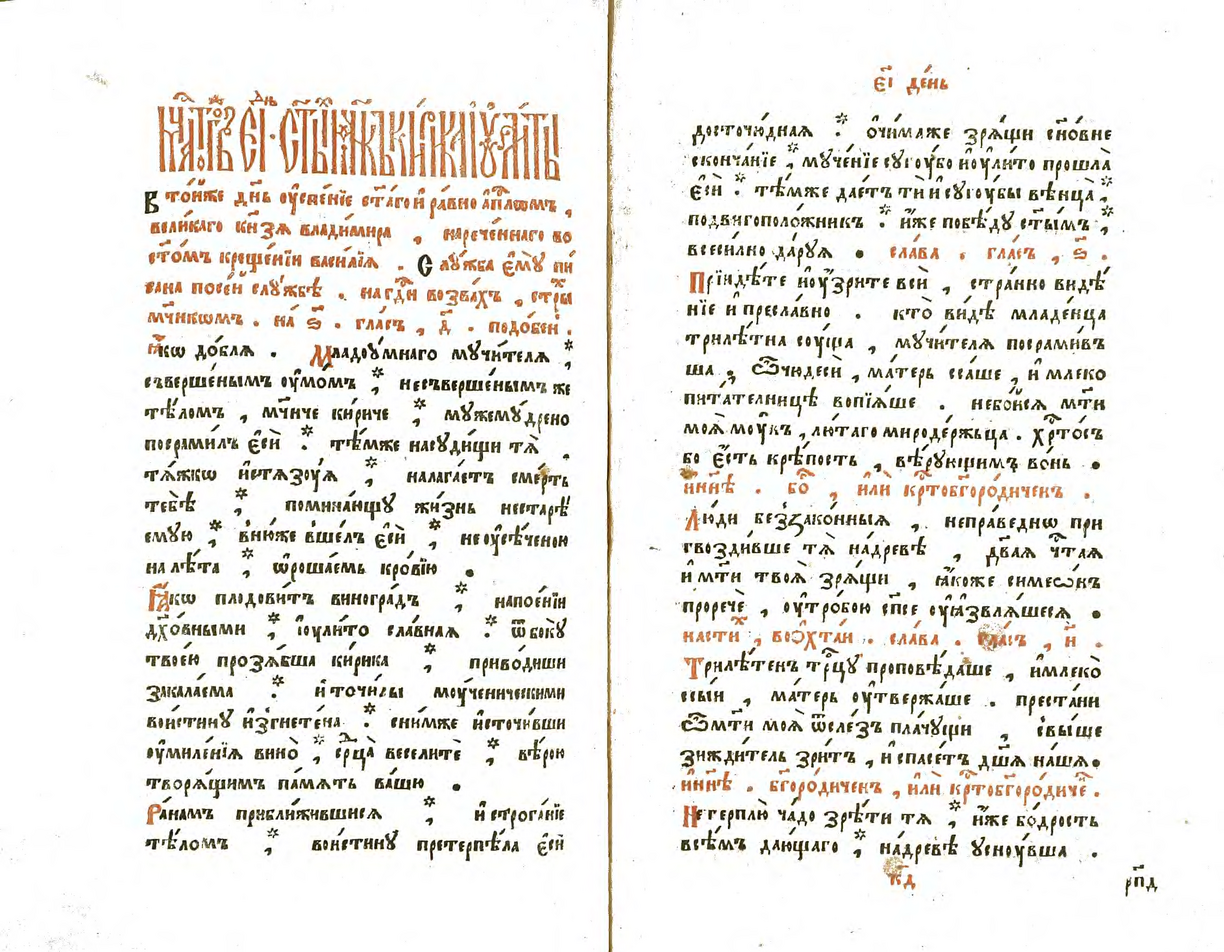 В то́йже дн҃ь ѹ҆спе́нїе ст҃а́го и҆ ра́вно а҆п҃лѡмъ ,
вели́каго кнѧ́зѧ влади́мира , нарече́ннаго во
ст҃о́мъ крещенїи васи́лїѧ . Слꙋ́жба є҆мꙋ̀ пи
сана посе́й слꙋ́жбѣ . на гдⷭ҇и возва́хъ , стрⷯы
мч҃никѡмъ . на́ ѕ҃ . гла́съ , д҃ . подо́бенꙿ .
Ꙗ҆́кѡ до́блѧ . Младоꙋ́мнаго мꙋчи́телѧ *
съверше́нымъ ѹ҆мо́мъ ,* несъверше́нымъ же
тѣ́ломъ , мч҃ниче ки́риче ,* мꙋжемꙋ́дрено
посрами́лъ є҆сѝ :* тѣ́мже насꙋди́щи тѧ̀ ,
тѧ́жкѡ и҆стѧзꙋ́ѧ ,* налага́етъ сме́рть
тебѣ̀ ,* помина́ющꙋ жи́знь нестарѣ́
емꙋю ,* в̾ню́же вше́лъ є҆сѝ ,* неѹ҆сѣ́ченою
на лѣ́та ,* ѡ҆роша́емь кро́вїю .
Ꙗ҆́кѡ плодови́тъ виногра́дъ ,* напое́нїи
дх҃о́вными ,* і҆ѹли́то сла́внаѧ :* ѿ бо́кꙋ
твоею̀ прозѧ́бша ки́рика ,* приво́диши
закала́ема :* и҆ точи́лы моꙋ́ченическими
вои́стинꙋ и҆згнете́на :* сни́мже и҆сточи́вши
ѹ҆миле́нїѧ вино̀ ,* срⷣца̀ весели́те ,* вѣ́рою
творѧ́щимъ па́мѧть ва́шю .
Ра́намъ прибли́жившисѧ ,* и҆ строга́нїе
тѣ́ломъ ,* вои́стинꙋ претерпѣ́ла є҆сѝ
є҃і де́нь
досточю́днаѧ :* ѻ҆чи́маже зрѧ́щи сн҃о́вне
сконча́нїе ,* мꙋче́нїе сꙋгꙋ́бо и҆ѹли́то прошла̀
є҆сѝ :* тѣ́мже дае́тъ ти и҆ сꙋгꙋ́бы вѣнца̀ ,*
подвигополо́жникъ :* и҆́же побѣ́дꙋ ст҃ы́мъ ,*
всеси́лно да́рꙋѧ . сла́ва , гла́съ , ѕ҃ .
Прїиди́те и҆ оу҆́зрите всѝ , стра́нно видѣ́
нїе и҆ пресла́вно . кто̀ ви́дѣ младе́нца
трилѣ́тна соꙋ́ща , мꙋчи́телѧ посрами́въ
ша , Ѽ чюдесѝ , ма́терь сса́ше , и҆ млеко
пита́телницѣ вопїѧ́ше . небо́йсѧ мт҃и
моѧ̀ моꙋ́къ , лю́таго миродержьца . хрⷭ҇то́съ
бо є҆́сть крѣ́пость , вѣ́рꙋющимъ во́нь .
ны́нѣ . бо҃ , и҆лѝ крⷭ҇тобг҃оро́диченъ .
Лю́ди без̾зако́нныѧ , непра́веднѡ при
гвозди́вше тѧ̀ на́древѣ , дв҃аѧ чⷭ҇таѧ
и҆ мт҃и твоѧ̀ зрѧ́щи , ꙗ҆́коже симеѡ́нъ
пророчѐ , ѹ҆тро́бою сп҃се ѹ҆ꙗзвлѧ́шесѧ .
насти́хⷯ , воѻхта́и . сла́ва . гла́съ , и҃ .
Трилѣ́тенъ трⷪ҇цꙋ проповѣ́даше , и҆млеко̀
ссы́и , ма́терь ѹ҆твержа́ше . преста́ни
Ѽ мт҃и моѧ̀ ѿ сле́зъ пла́чꙋщи , свы́ше
зижди́тель зри́тъ , и҆ спасе́тъ дш҃а̀ на́шѧ .
ны́нѣ . бг҃оро́диченъ , и҆лѝ крⷭ҇тобг҃оро́диче .
Не терплю̀ ча́до зрѣ́ти тѧ ,* и҆́же бо́дрость
всѣ́мъ даю́щаго ,* на́древѣ ꙋсноꙋ́вша .
к҃д
рп҃д